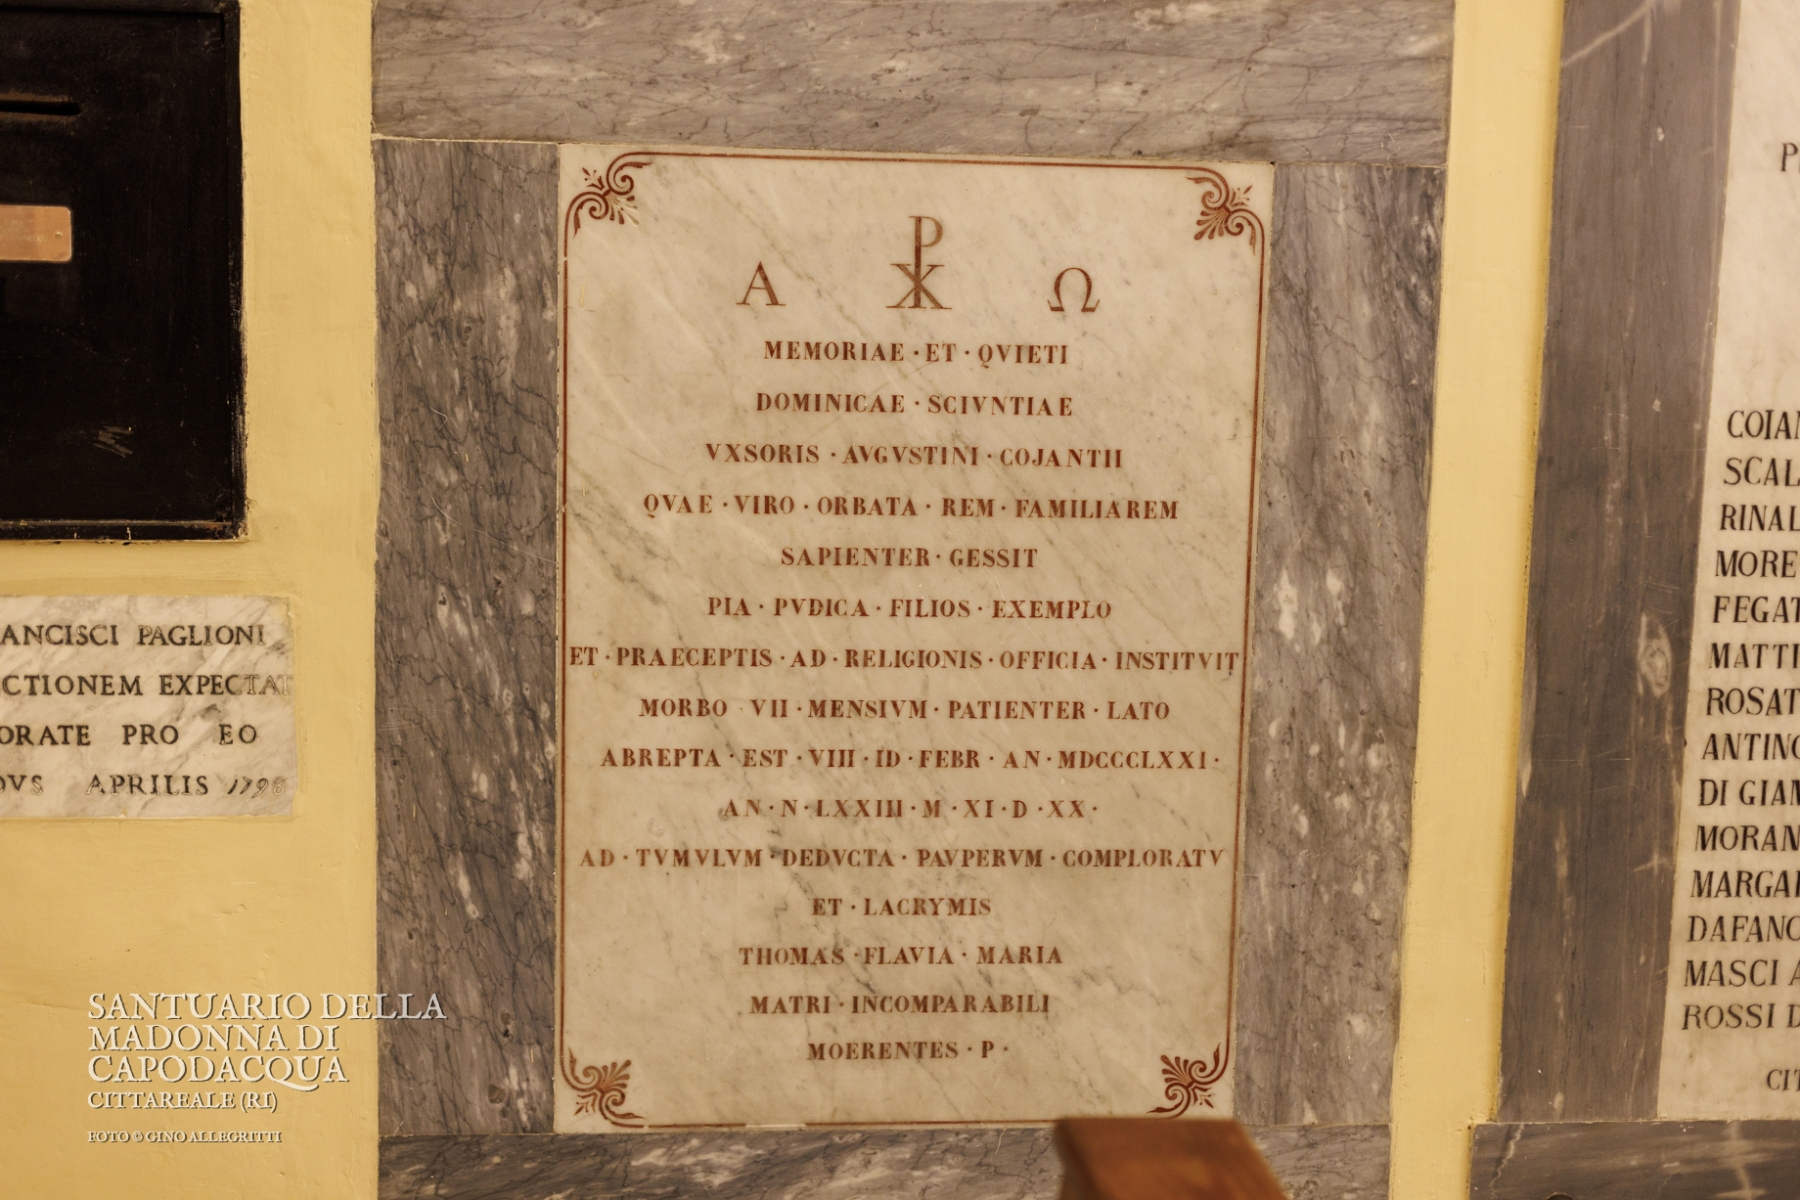 ANCISCI PAGLIONI
CTIONEM EXPECTAT
ORATE PRO EO
APRILIS 1798
Α ☧ Ω
MEMORIAE · ET · QVIETI
DOMINICAE · SCIVNTIAE
VXSORIS · AVGVSTINI · COJANTII
QVAE · VIRO · ORBATA · REM · FAMILIAREM
SAPIENTER · GESSIT
PIA · PVDICA · FILIOS · EXEMPLO
ET · PRAECEPTIS · AD · RELIGIONIS · OFFICIA · INSTITVIT
MORBO · VII · MENSIVM · PATIENTER · LATO
ABREPTA · EST · VIII · ID · FEBR · AN · MDCCCLXXI ·
AN · N · LXXIII · M · XI · D · XX ·
AD · TVMVLVM · DEDVCTA · PAVPERVM · COMPLORATV
ET · LACRYMIS
THOMAS · FLAVIA · MARIA
MATRI · INCOMPARABILI
MOERENTES · P ·
COIAN
SCAL
RINAL
MORE
FEGAT
MATTI
ROSAT
ANTINO
DI GIAM
MORAN
MARGAR
DAFANO
MASCI A
ROSSI D
CIT
SANTUARIO DELLA
MADONNA DI
CAPODACQUA
CITTAREALE (RI)
FOTO © GINO ALLEGRITTI